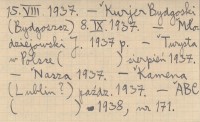 15. VIII 1937. — "Kurjer Bydgoski"
(Bydgoszcz) 8. IX. 1937. — "Mło-
dziejowski J. 1937 r. — "Turysta
w Polsce ( ) sierpień 1937.
— "Nasza 1937. — "Kamena
(Lublin?) paźdz. 1937. — "ABC
( ) — 1938, nr 171.